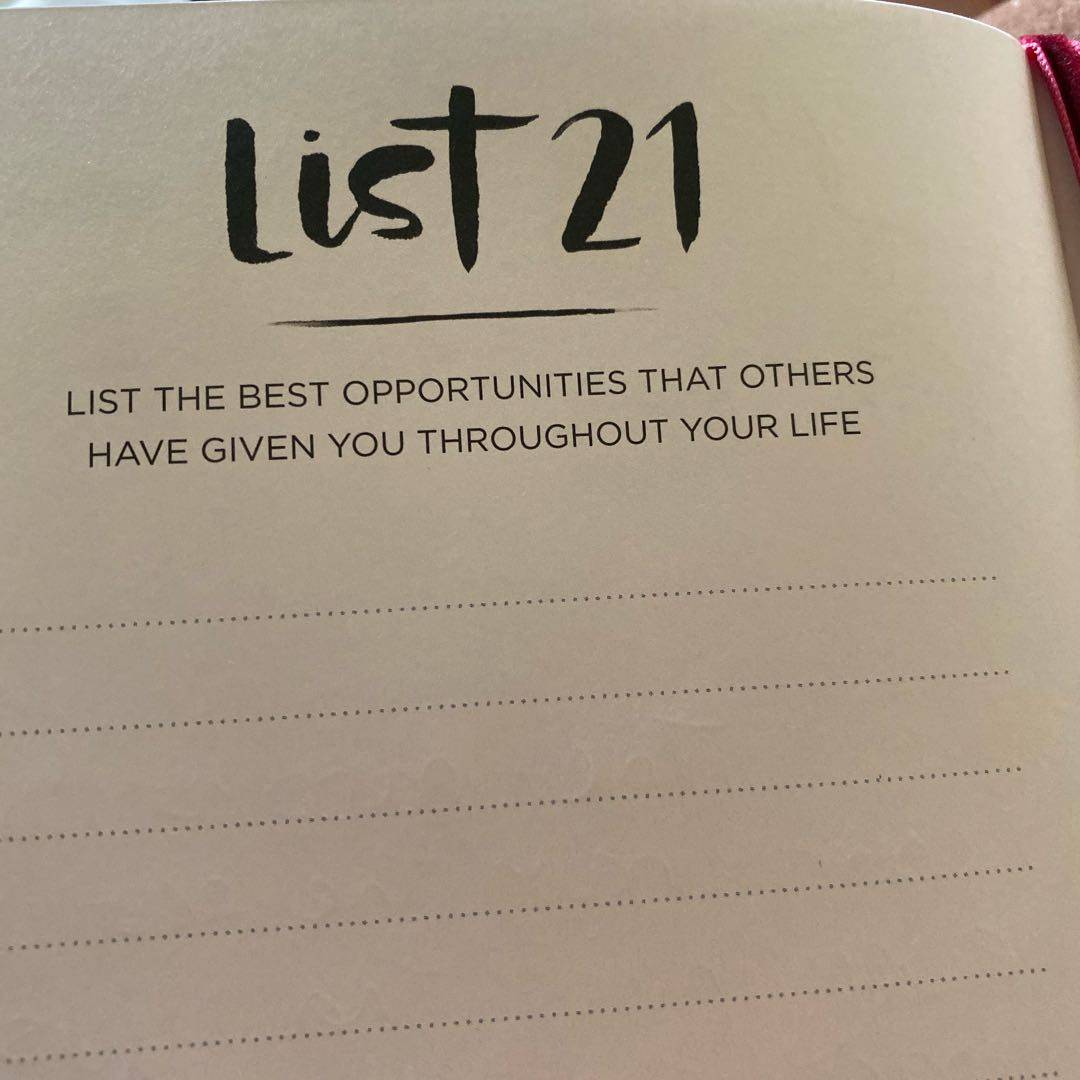 List 21
LIST THE BEST OPPORTUNITIES THAT OTHERS
HAVE GIVEN YOU THROUGHOUT YOUR LIFE